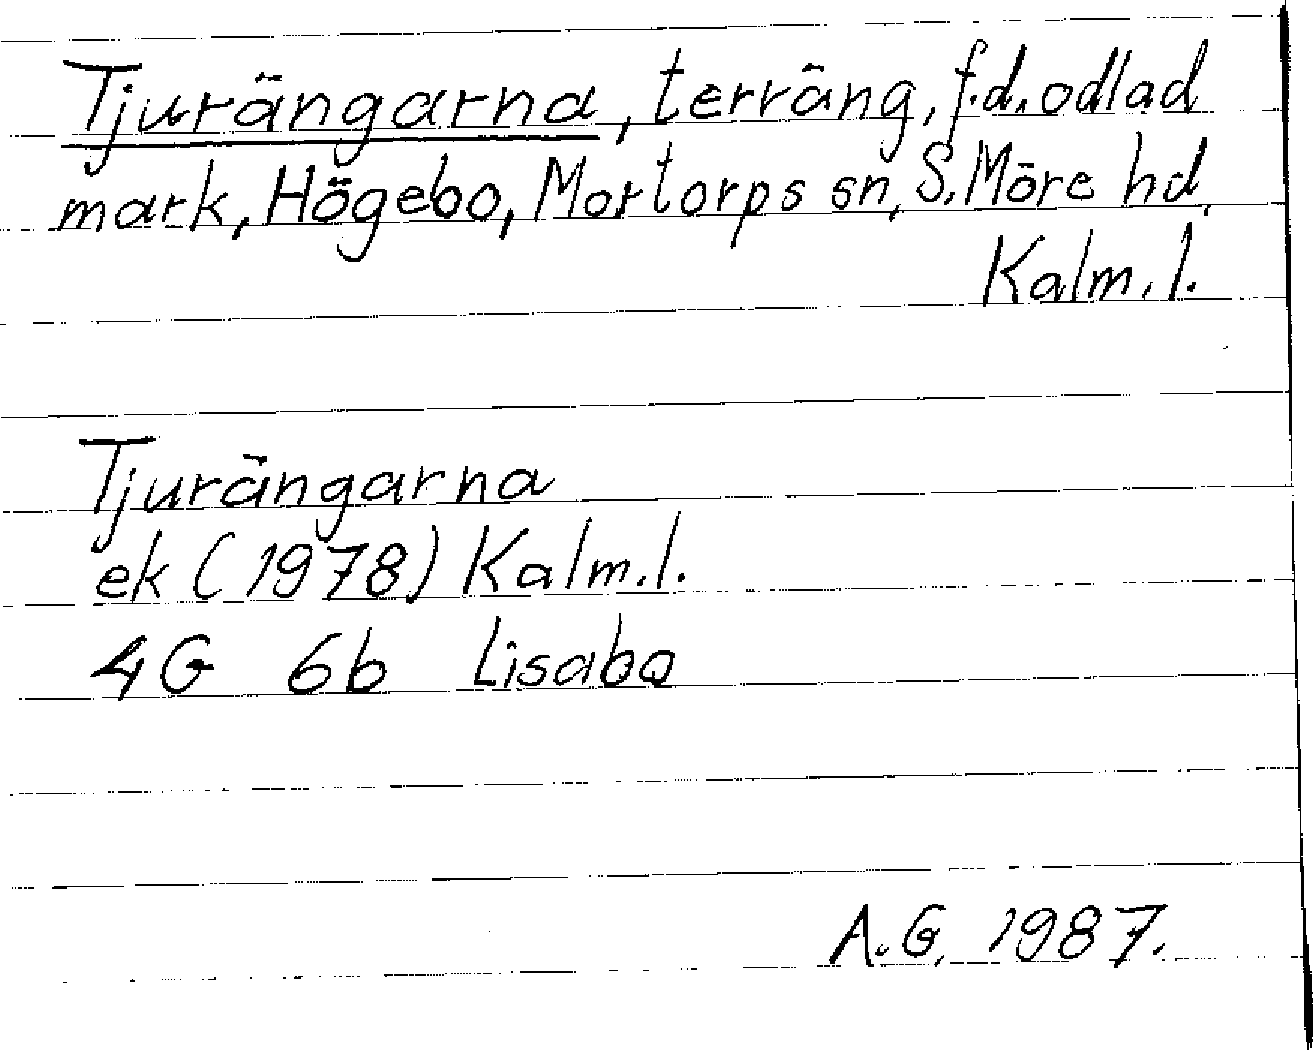 Tjurängarna, terräng, f.d. odlad
mark, Högebo, Mortorps sn, S. Möre hd,
Kalm. l.
Tjurängarna
ek (1978) Kalm. l.
4G 6b Lisabo
A.G. 1987.